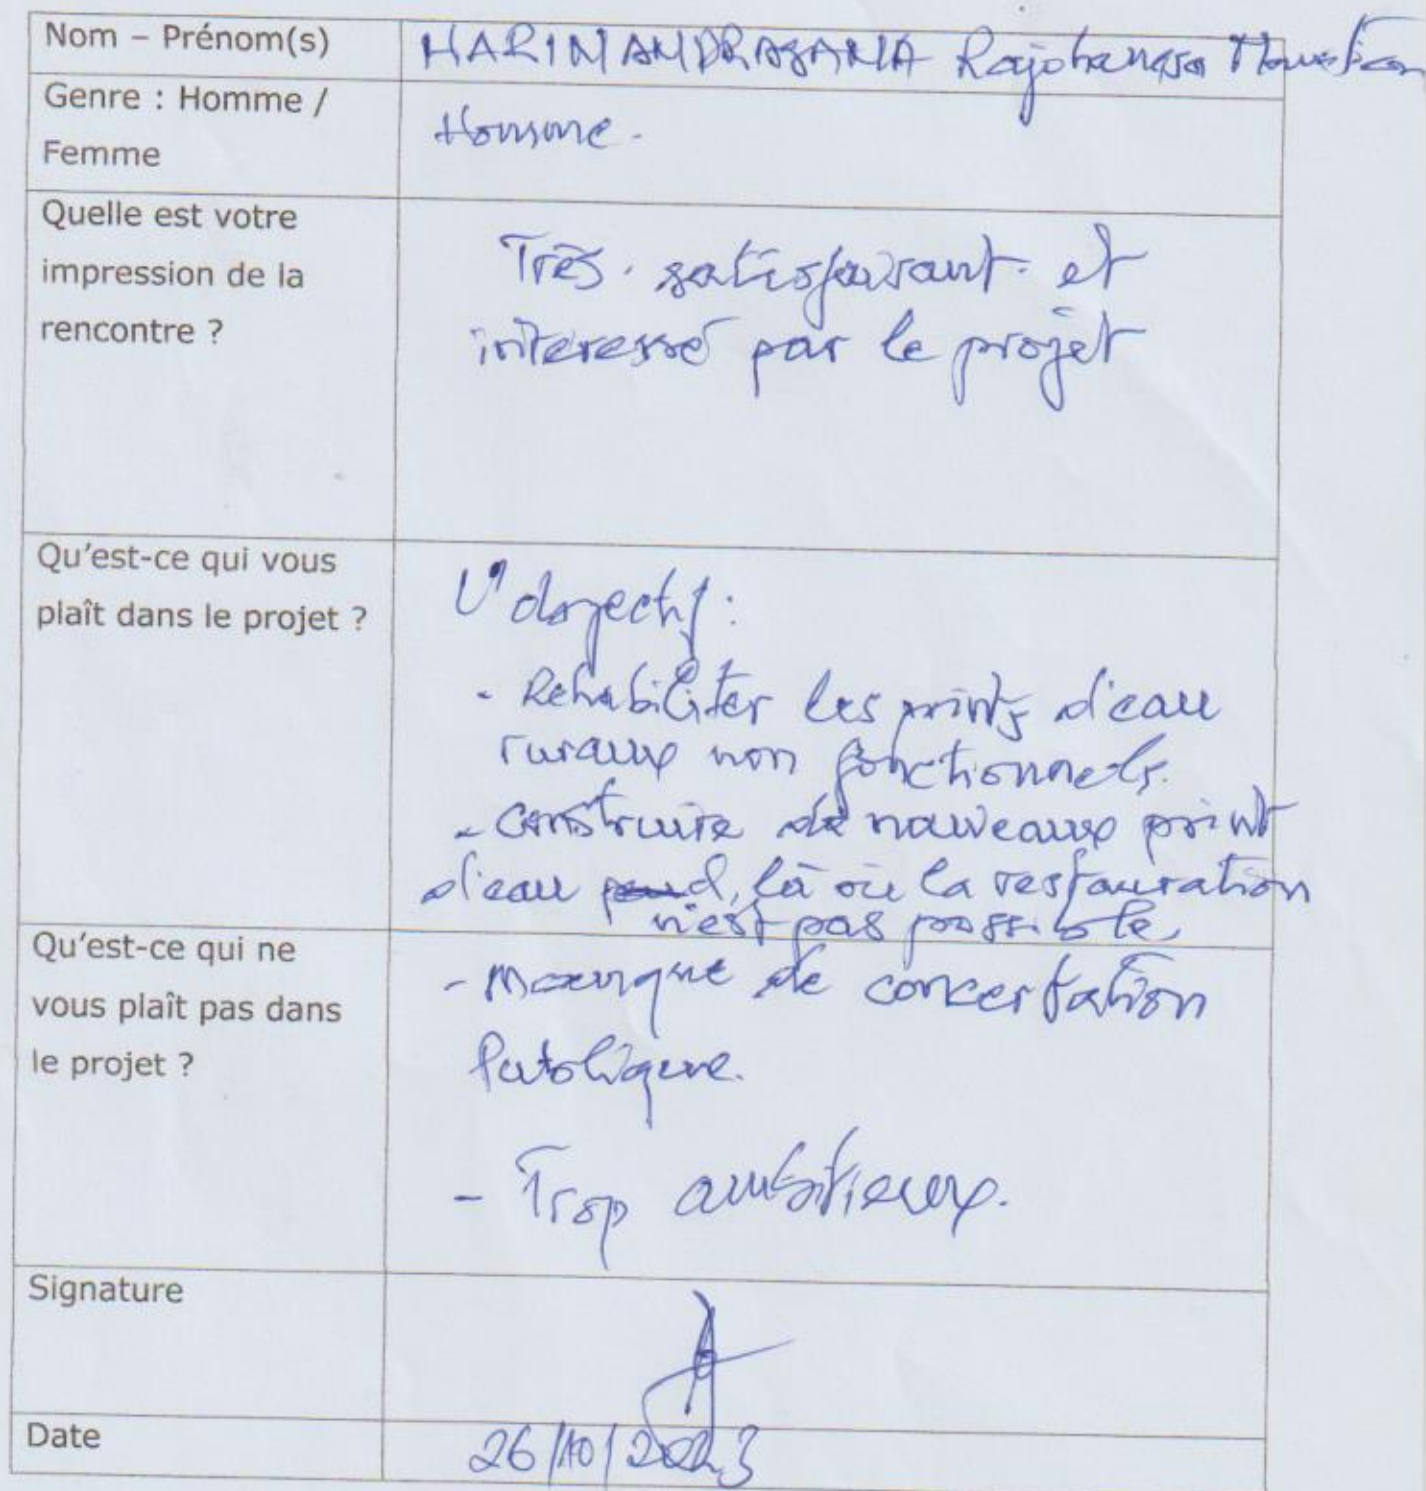 Nom – Prénom(s)
Genre : Homme /
Femme
Homme.
Quelle est votre
impression de la
rencontre ?
Très satisfaisant et
interessé par le projet
Qu'est-ce qui vous
plaît dans le projet ?
- Rehabiliter les points d'eau
ruraux non fonctionnels.
- Construire de nouveaux point
d'eau là où la restauration
n'est pas possible
Qu'est-ce qui ne
vous plaît pas dans
le projet ?
- Manque de concertation
Publique.
- Trop ambitieux.
Signature
Date
26/10/2023